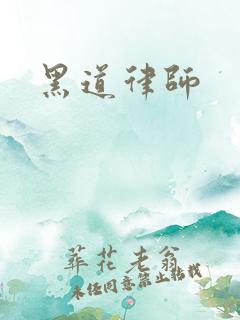 黑道律師
葬花老翁
未经同意禁止转载